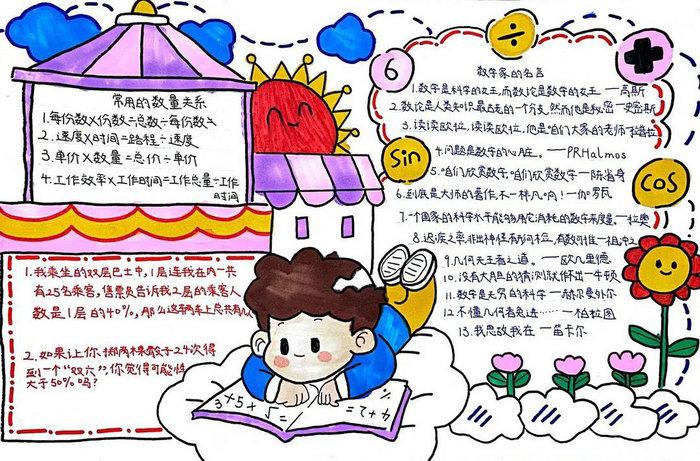 常用的数量关系
1.每份数×份数=总数÷每份数=
2.速度×时间=路程÷速度
3.单价×数量=总价÷单价
4.工作效率×工作时间=工作总量÷工作
时间
1.我乘坐的双层巴士中,1层连我在内一共
有25名乘客,售票员告诉我2层的乘客人
数是1层的40%,那么这辆车上总共有
2.如果让你掷两棵骰子24次得
到一个“双六”,你觉得可能性
大于50%吗?
3+5+√=
6
÷
Sin
cos
数学家的名言
1.数学是科学的女王,而数论是数学的女王 —高斯
2.数论是人类知识最古老的一个分支,然而他是 —史密斯
3.读读欧拉,读读欧拉,他是咱们大家的老师
4.问题是数学的心脏。—PRHalmos
5.咱们欣赏数学,咱们欣赏数学—陈省身
6.到底是大师的著作,不一样
7.个国家的科学水平能够用它消耗的数学来度量—拉奥
8.迟疾之率,非出神怪,有形可检,有数可推—祖冲之
9.几何无王者之道。—欧几里德
10.没有大胆的猜测 —牛顿
11.数学是无穷的科学—赫尔曼外尔
12.不懂几何者免进……—柏拉图
13.我思故我在—笛卡尔